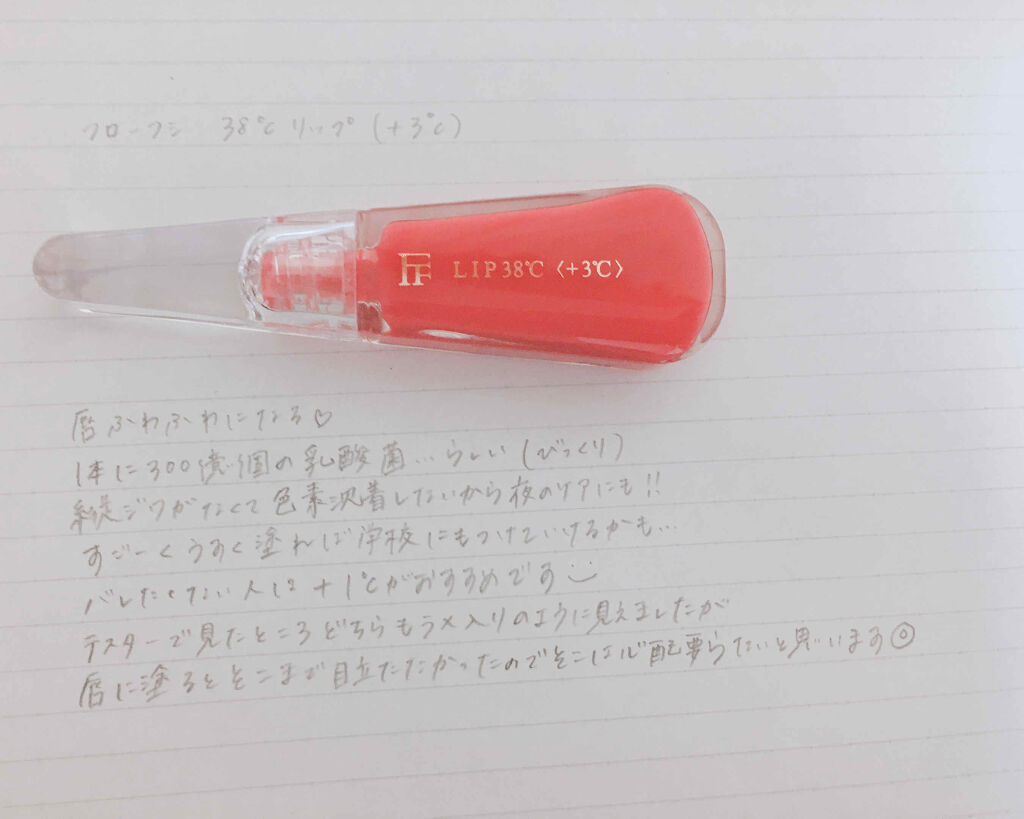 フローフシ 38℃リップ(+3℃)
FF LIP38℃〈+3℃〉
唇ふわふわになる♡
1本に300億個の乳酸菌…らしい(びっくり)
縦ジワがなくて色素沈着しないから夜のケアにも!!
すごーくうすく塗れば学校にもつけていけるかも…
バレたくない人は+1℃がおすすめです
テスターで見たところどちらもラメ入りのように見えましたが
唇に塗るとそこまで目立たなかったのでそこは心配要らないと思います◎